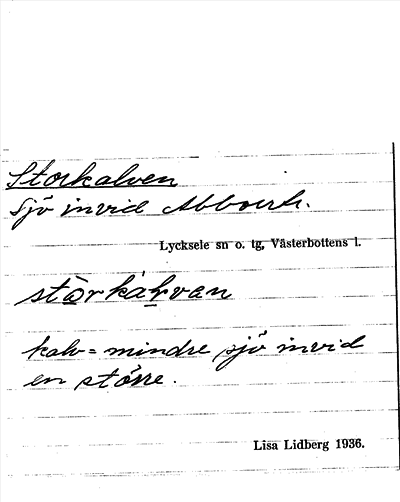 Storkalven
Sjö invid Abbortr.
Lycksele sn o. tg, Västerbottens l.
stòrkálvan
kalv = mindre sjö invid
en större.
Lisa Lidberg 1936.